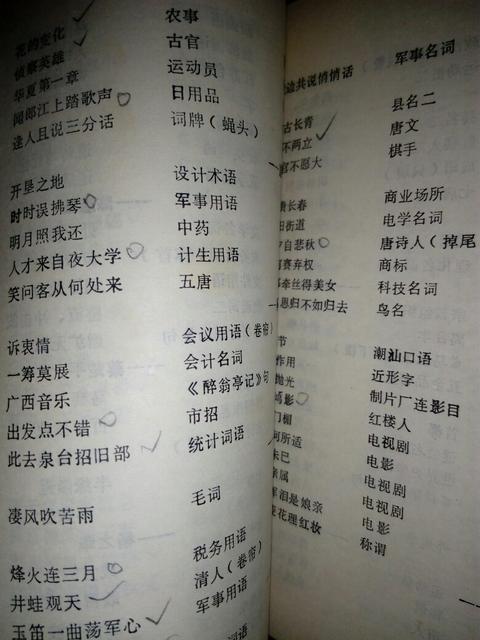 花的变化 农事
侦察英雄 古官
华夏第一章 运动员
闻郎江上踏歌声 日用品
逢人且说三分话 词牌（蝇头）
开垦之地 设计术语
时时误拂琴 军事用语
明月照我还 中药
人才来自夜大学 计生用语
笑问客从何处来 五唐
诉衷情 会议用语（卷帘）
一筹莫展 会计名词
广西音乐 《醉翁亭记》句
出发点不错 市招
此去泉台招旧部 统计词语
凄风吹苦雨 毛词
烽火连三月 税务用语
井蛙观天 清人（卷帘）
玉笛一曲荡军心 军事用语
词语
边共说悄悄话 军事名词
古长青 县名二
不两立 唐文
官不愿大 棋手
长春 商业场所
田街道 电学名词
自悲秋 唐诗人（掉尾
赛弃权 商标
牵丝得美女 科技名词
恩归不如归去 鸟名
节 潮汕口语
作用 近形字
抛光 制片厂连影目
影 红楼人
门楣 电视剧
何所适 电影
未巳 电视剧
亲属 电视剧
泪是娘亲 电影
花理红妆 称谓